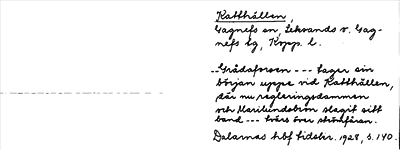 Katthällen,
Gagnefs sn, Leksands o. Gag-
nefs tg, Kopp. l.
--Grådaforsen --- tager sin
början uppe vid Katthällen,
där nu regleringsdammen
och Marilundsbron slagit sitt
band --- tvärs över strömfåran.
Dalarnas hbf tidskr. 1928, s. 140.